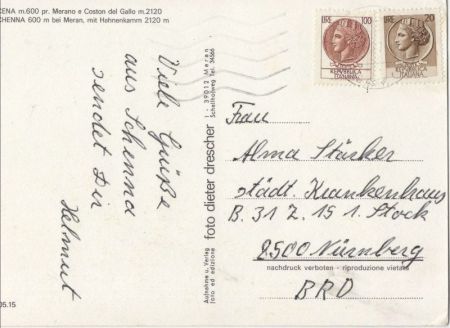 CENA m.600 pr. Merano e Coston del Gallo m.2120
CHENNA 600 m bei Meran, mit Hahnenkamm 2120 m
Viele Grüße
aus Schenna
sendet Dir
Helmut
05.15
Aufnahme u. Verlag
foto ed edizione
foto dieter drescher
I - 39012 Meran
LIRE 100
REPVBBLICA
ITALIANA
LIRE 20
Frau
Alma Stärker
städt. Krankenhaus
B. 31 Z. 15 1. Stock
8500 Nürnberg
nachdruck verboten - riproduzione vietata
BRD